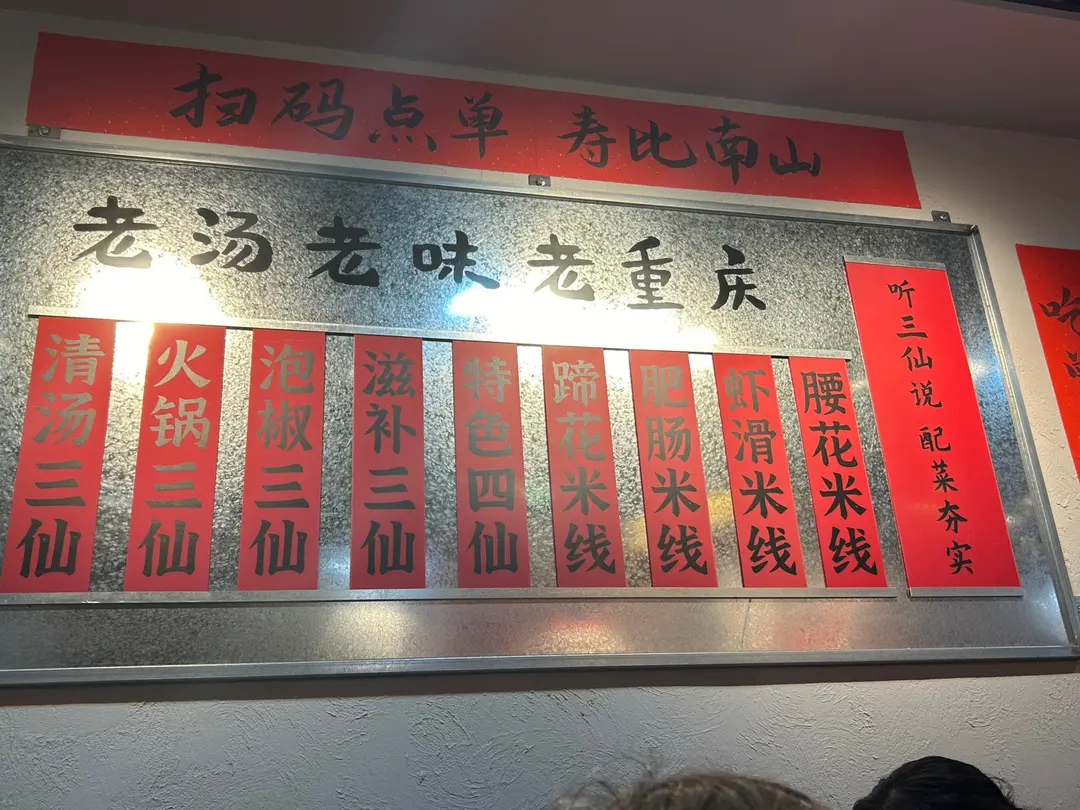 扫码点单 寿比南山
老汤老味老重庆
清汤三仙
火锅三仙
泡椒三仙
滋补三仙
特色四仙
蹄花米线
肥肠米线
虾滑米线
腰花米线
听三仙说 配菜夯实
吃